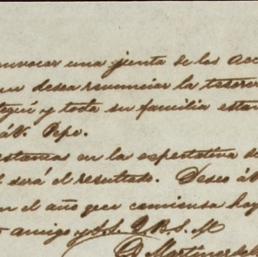 convocar una junta de los acc
desea renunciar la tesor
y toda su familia estan
á N. Pepe.
estamos en la espectativa d
será el resultado. Deseo á N
en el año que comiensa hoy
amigo y S. S. Q. B. S. M.
Martinez del